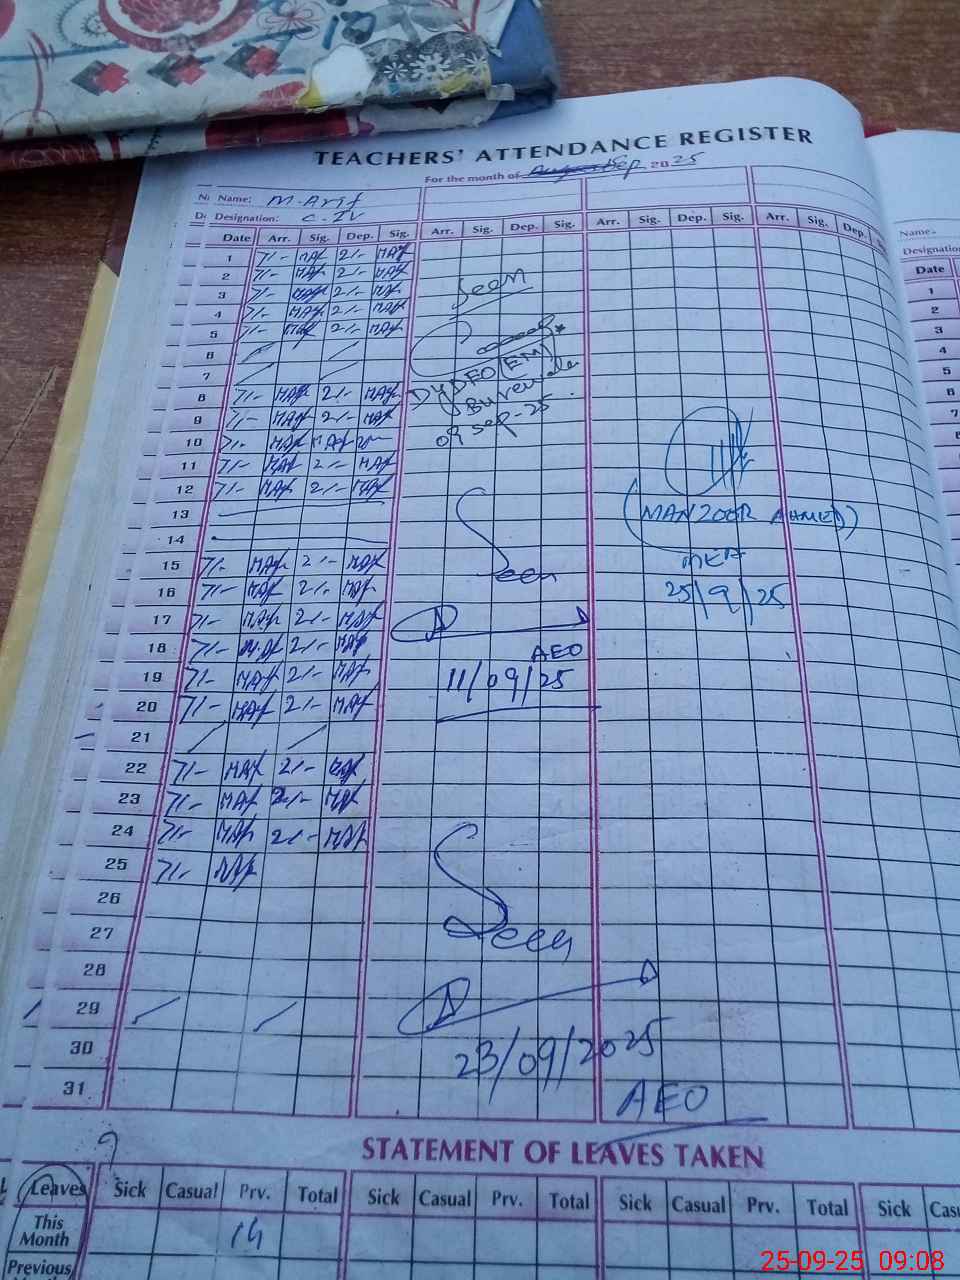 TEACHERS' ATTENDANCE REGISTER
For the month of Sep 2025
Name: M. Arif
Designation:
Date Arr. Sig. Dep. Sig. Arr. Sig. Dep. Sig. Arr. Sig. Dep. Sig. Arr. Sig. Dep.
1 7/- MAf 2/- MAf
2 7/- MAf 2/- MAf
3 7/- MAf 2/- MAf
4 7/- MAf 2/- MAf
5 7/- MAf 2/- MAf
6
7
8 7/- MAf 2/- MAf
9 7/- MAf 2/- MAf
10 7/- MAf MAf
11 7/- MAf 2/- MAf
12 7/- MAf 2/- MAf
13
14
15 7/- MAf 2/- MAf
16 7/- MAf 2/- MAf
17 7/- MAf 2/- MAf
18 7/- MAf 2/- MAf
19 7/- MAf 2/- MAf
20 7/- MAf 2/- MAf
21
22 7/- MAf 2/- MAf
23 7/- MAf 2/- MAf
24 7/- MAf 2/- MAf
25 7/- MAf
26
27
28
29
30
31
Seen
DYDEO (EM)
Burewala
09 Sep-25
Seen
AEO
11/09/25
Seen
23/09/2025
AEO
(MANZOOR AHMED)
MEA
25/9/25
Name
Designation
Date
1
2
3
4
5
6
7
8
STATEMENT OF LEAVES TAKEN
Leaves Sick Casual Prv. Total Sick Casual Prv. Total Sick Casual Prv. Total Sick
This Month 14
Previous
25-09-25 09:08